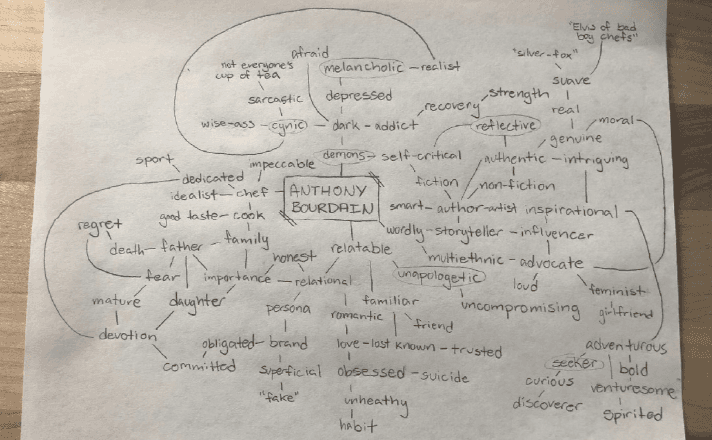 "Elvis of bad
boy chefs"
"silver-fox"
afraid
not everyone's
cup of tea
melancholic - realist
suave
sarcastic
depressed
recovery
strength
real
moral
wise-ass - cynic - dark - addict
reflective
genuine
sport
impeccable
demons - self-critical
authentic - intriguing
dedicated
fiction
non-fiction
idealist - chef - ANTHONY
BOURDAIN
smart - author-artist
inspirational
good taste - cook
regret
wordly - storyteller - influencer
death - father - family
honest
relatable
multiethnic - advocate
fear
importance - relational
unapologetic
loud
feminist
mature
daughter
persona
familiar
uncompromising
girlfriend
romantic
friend
devotion
obligated - brand
love - lost
known - trusted
adventurous
committed
seeker
bold
superficial
obsessed - suicide
curious
venturesome
"fake"
unheathy
discoverer
spirited
habit